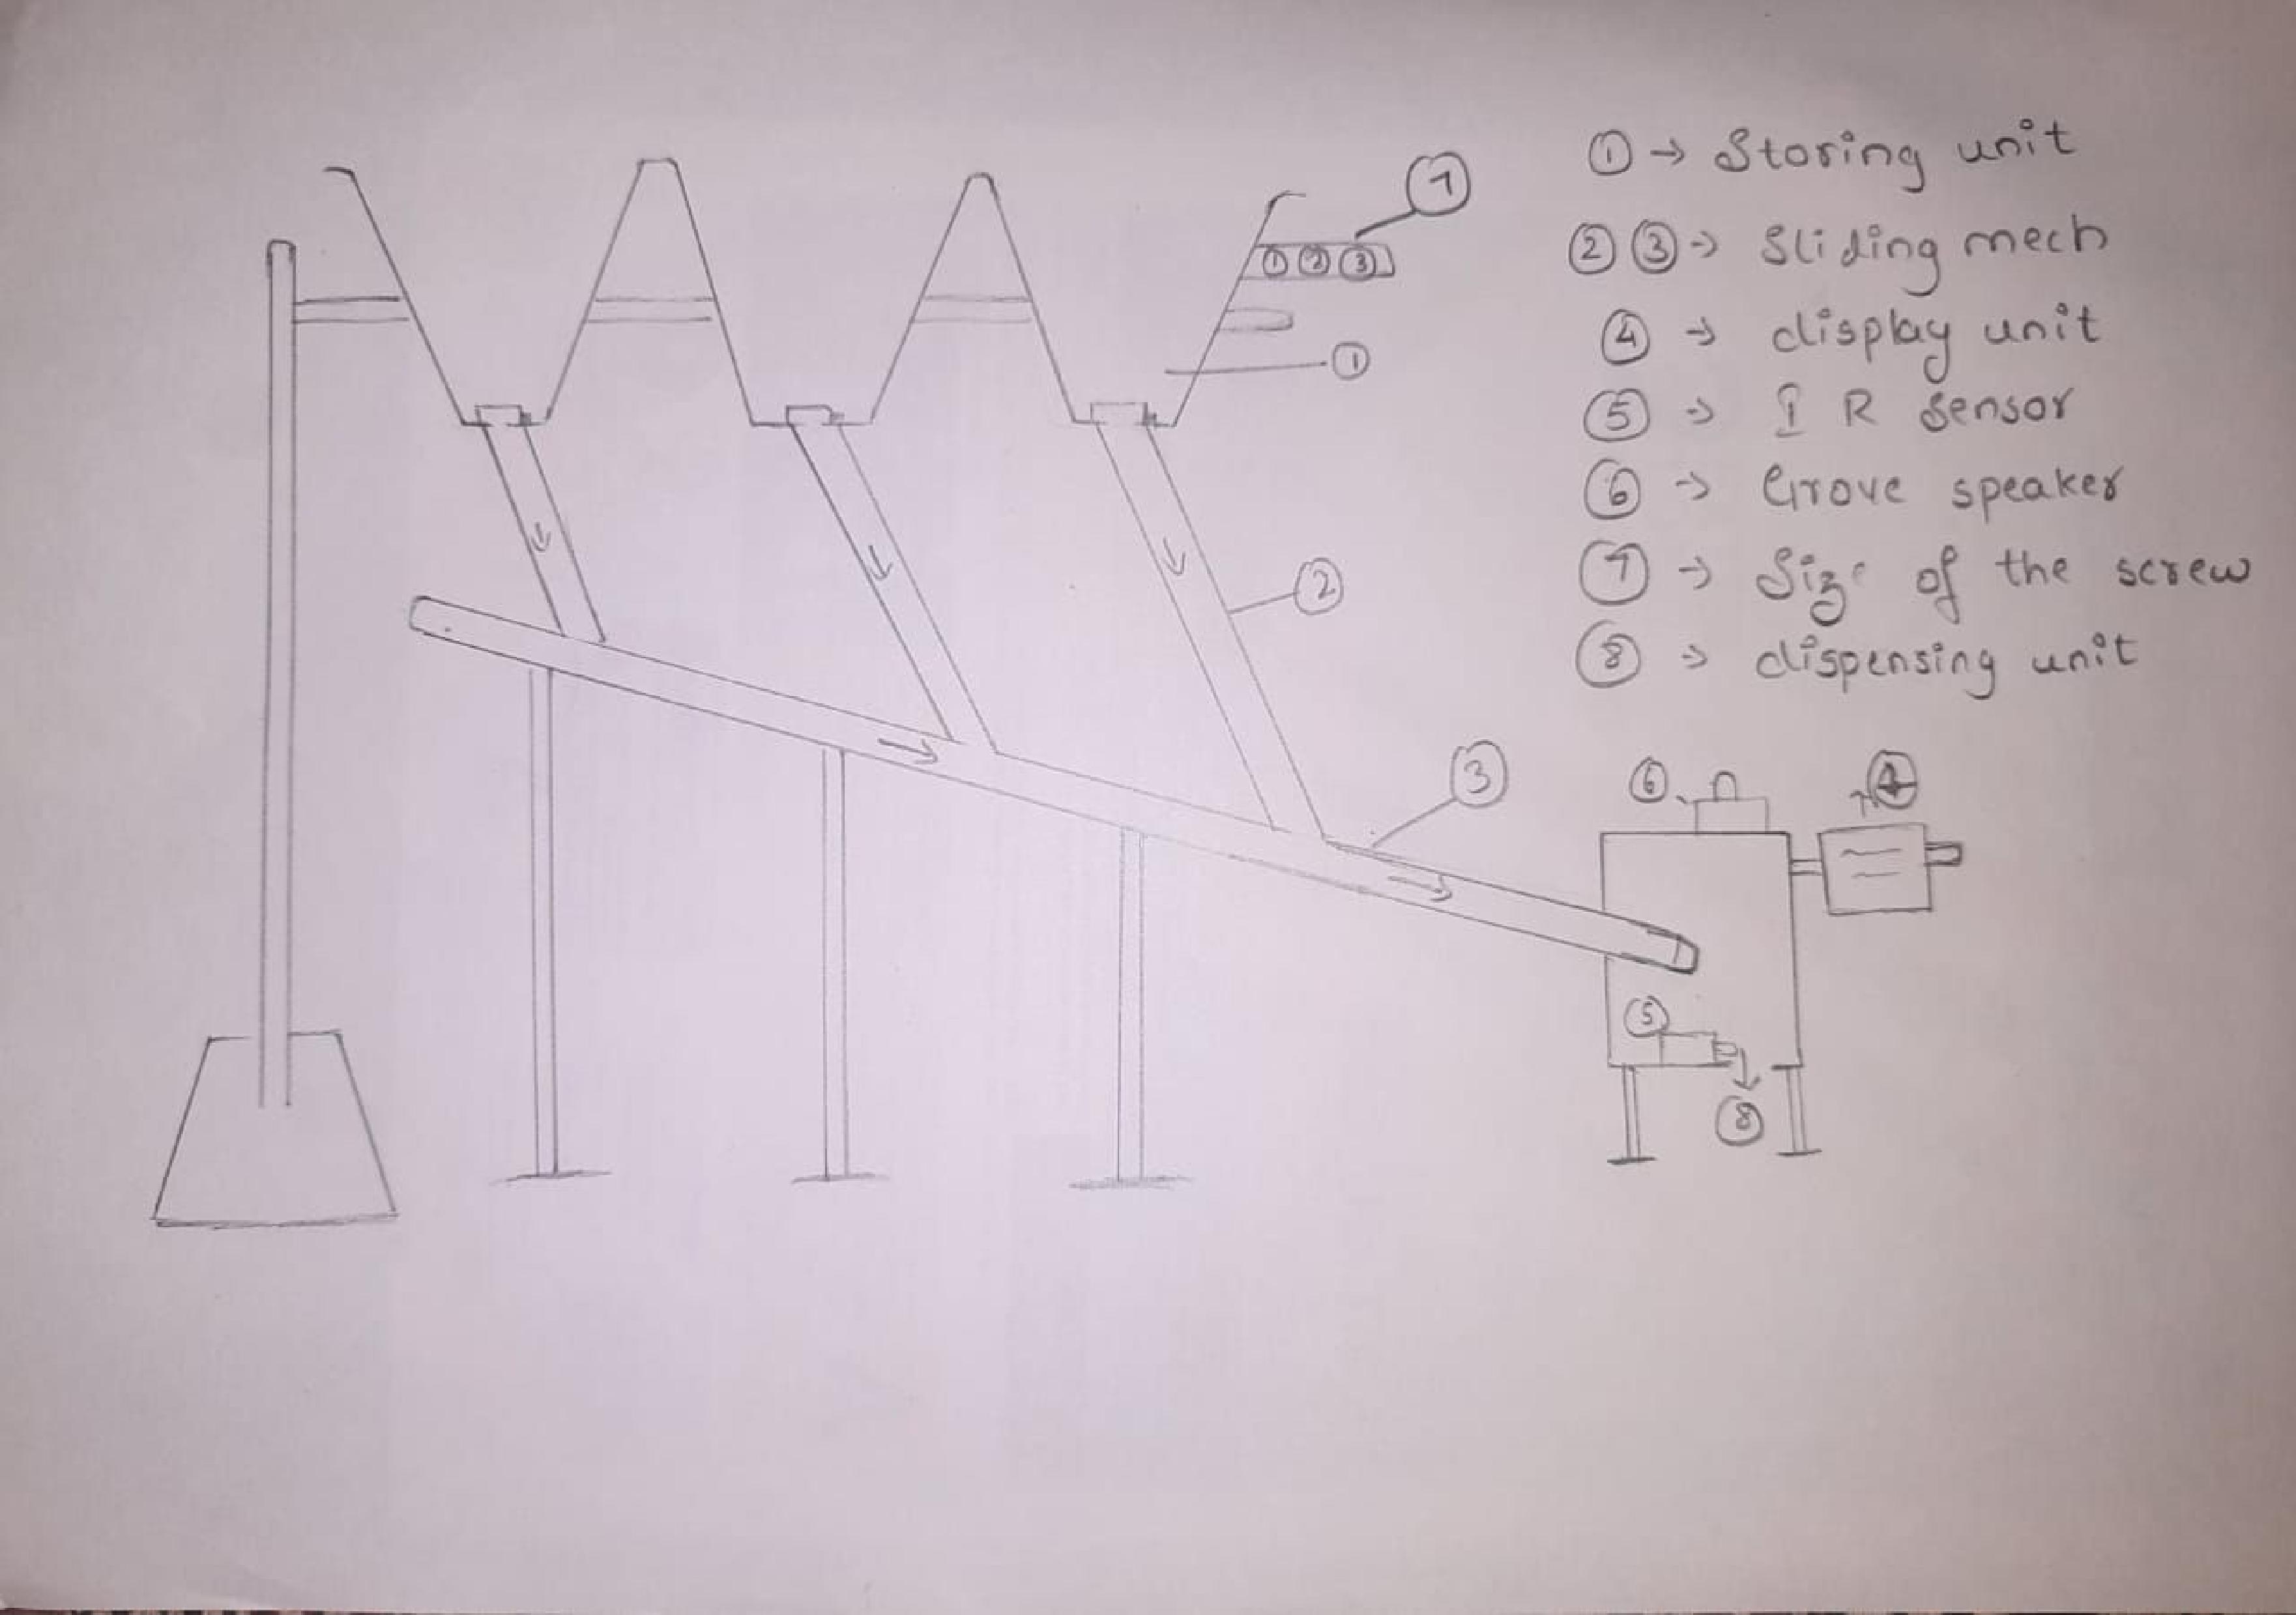 ① → Storing unit
② ③ → Sliding mech
④ → display unit
⑤ → I R sensor
⑥ → Grove speaker
⑦ → Size of the screw
⑧ → dispensing unit
⑦
① ② ③
①
②
③
⑥
④
⑤
⑧